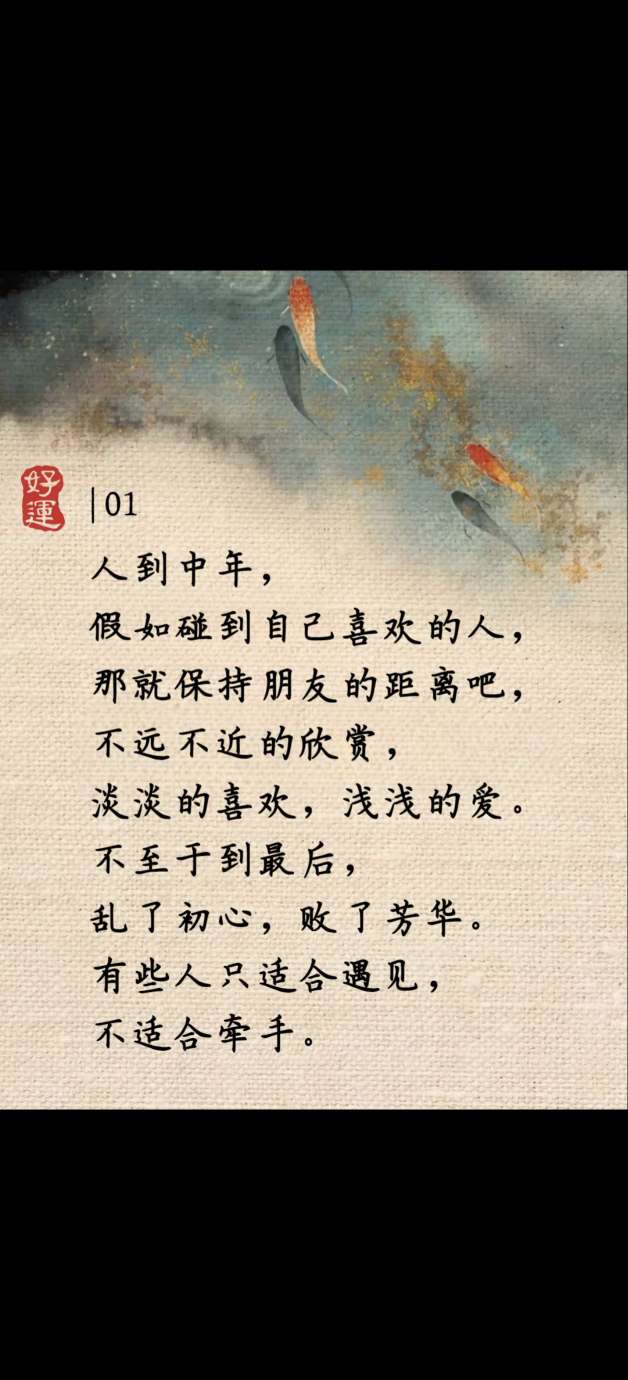 好運
01
人到中年，
假如碰到自己喜欢的人，
那就保持朋友的距离吧，
不远不近的欣赏，
淡淡的喜欢，浅浅的爱。
不至于到最后，
乱了初心，败了芳华。
有些人只适合遇见，
不适合牵手。